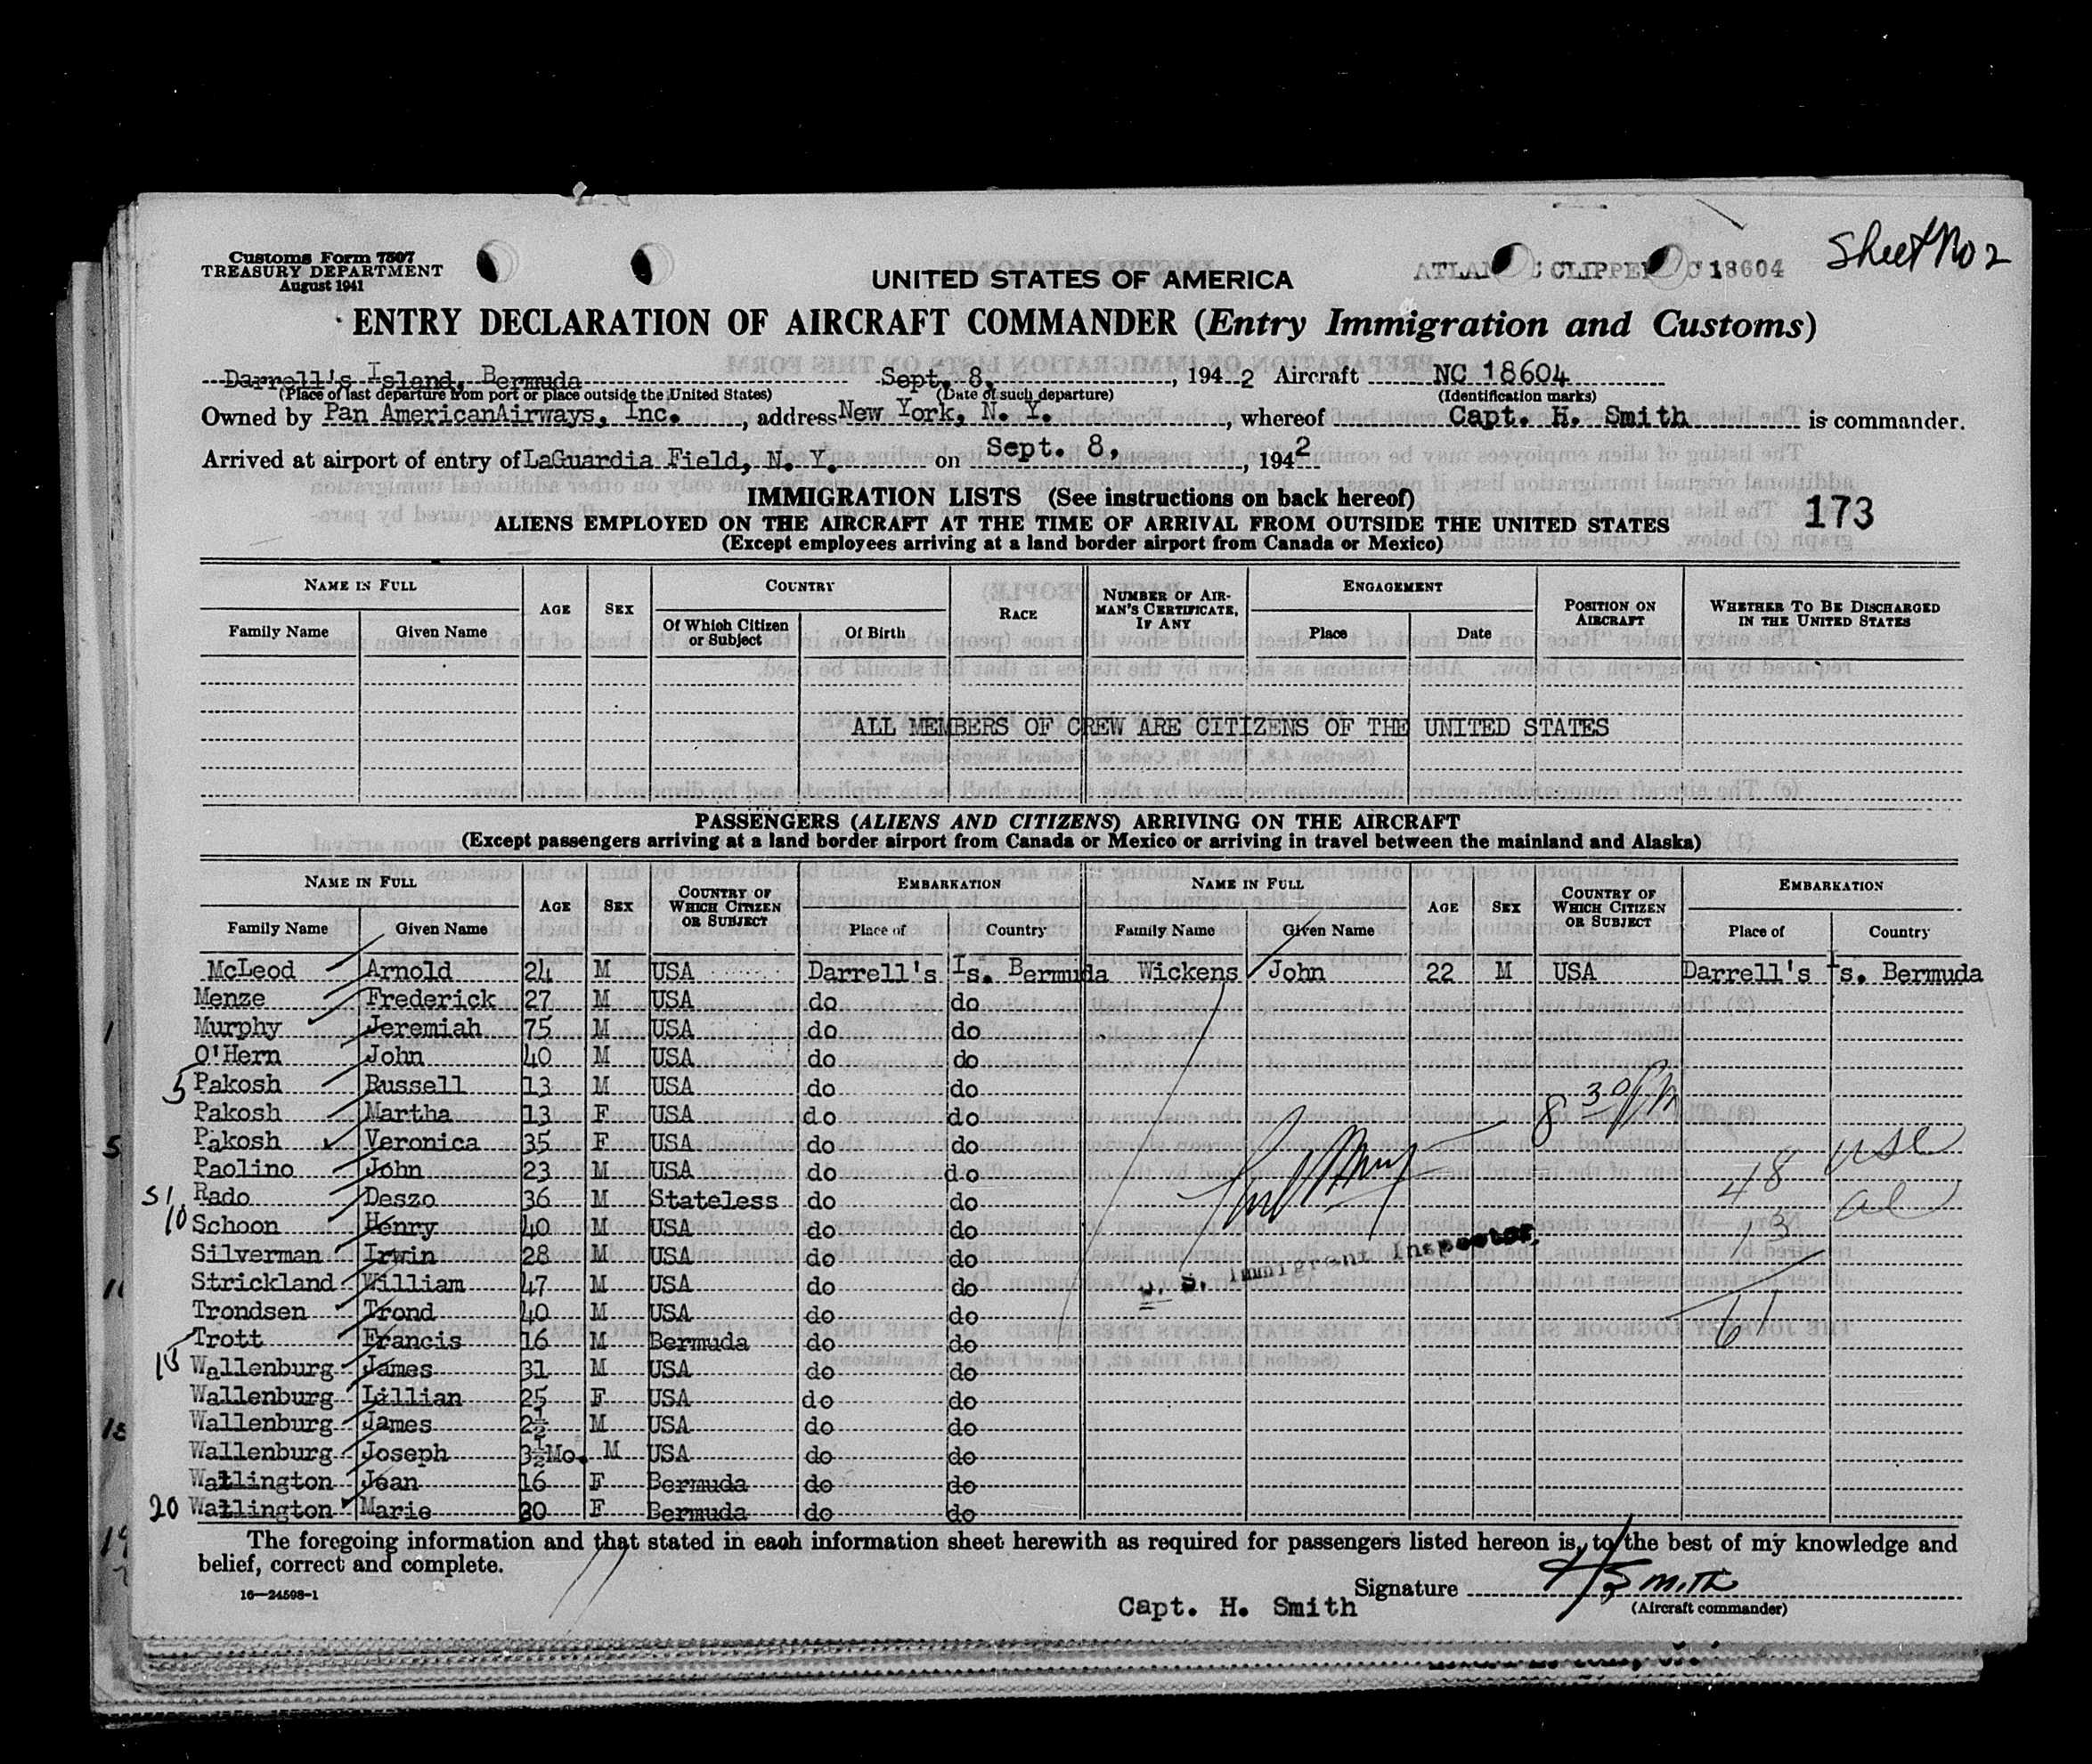 Customs Form 7507
TREASURY DEPARTMENT
August 1941
UNITED STATES OF AMERICA
CLIPPER 18604
Sheet No 2
ENTRY DECLARATION OF AIRCRAFT COMMANDER (Entry Immigration and Customs)
Darrell's Island, Bermuda Sept. 8, 1942 Aircraft NC 18604
(Place of last departure from port or place outside the United States) (Date of such departure) (Identification marks)
Owned by Pan AmericanAirways, Inc., address New York, N. Y., whereof Capt. H. Smith is commander.
Arrived at airport of entry of LaGuardia Field, N. Y. on Sept. 8, 1942
IMMIGRATION LISTS (See instructions on back hereof)
173
ALIENS EMPLOYED ON THE AIRCRAFT AT THE TIME OF ARRIVAL FROM OUTSIDE THE UNITED STATES
(Except employees arriving at a land border airport from Canada or Mexico)
NAME IN FULL AGE SEX COUNTRY RACE NUMBER OF AIRMAN'S CERTIFICATE, IF ANY ENGAGEMENT POSITION ON AIRCRAFT WHETHER TO BE DISCHARGED IN THE UNITED STATES
Family Name Given Name Of Which Citizen or Subject Of Birth Place Date
ALL MEMBERS OF CREW ARE CITIZENS OF THE UNITED STATES
PASSENGERS (ALIENS AND CITIZENS) ARRIVING ON THE AIRCRAFT
(Except passengers arriving at a land border airport from Canada or Mexico or arriving in travel between the mainland and Alaska)
NAME IN FULL AGE SEX COUNTRY OF WHICH CITIZEN OR SUBJECT EMBARKATION NAME IN FULL AGE SEX COUNTRY OF WHICH CITIZEN OR SUBJECT EMBARKATION
Family Name Given Name Place of Country Family Name Given Name Place of Country
McLeod Arnold 24 M USA Darrell's Is. Bermuda Wickens John 22 M USA Darrell's Is. Bermuda
Menze Frederick 27 M USA do do
Murphy Jeremiah 75 M USA do do
O'Hern John 40 M USA do do
5 Pakosh Russell 13 M USA do do
Pakosh Martha 13 F USA do do
8 30 PM
Pakosh Veronica 35 F USA do do
Paolino John 23 M USA do do
48 USC
Rado Deszo 36 M Stateless do do
10 Schoon Henry 40 M USA do do
13 al
Silverman Irwin 28 M USA do do
U. S. Immigrant Inspector.
Strickland William 47 M USA do do
Trondsen Trond 40 M USA do do
61
Trott Francis 16 M Bermuda do do
15 Wallenburg James 31 M USA do do
Wallenburg Lillian 25 F USA do do
Wallenburg James 2½ M USA do do
Wallenburg Joseph 3½Mo. M USA do do
Watlington Jean 16 F Bermuda do do
20 Watlington Marie 30 F Bermuda do do
The foregoing information and that stated in each information sheet herewith as required for passengers listed hereon is, to the best of my knowledge and
belief, correct and complete.
16—24598-1
Signature H Smith
Capt. H. Smith
(Aircraft commander)